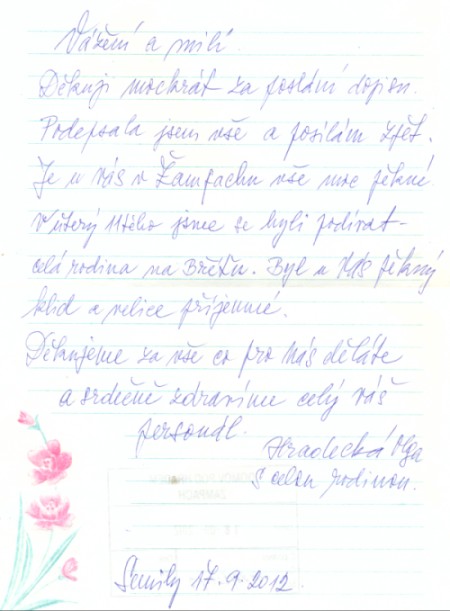 Vážení a milí.
Děkuji mockrát za poslání dopisu.
Podepsala jsem vše a posílám zpět.
Je u vás v Žampachu vše moc pěkné.
V úterý 11tého jsme se byli podívat -
celá rodina na Břeťu. Byl u Vás pěkný
klid a velice příjemné.
Děkujeme za vše co pro nás děláte
a srdečně zdravíme celý váš
personál.
Hradecká Olga
s celou rodinou.
Semily 17.9.2012